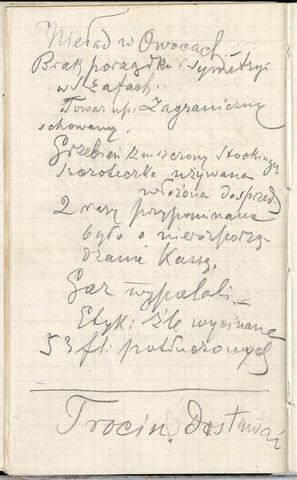 Nieład w Owocach
Brak porządku i Symetryi
w Szafach.
Towar np. Zagraniczny
schowany.
Grzebień zniszczony Stockinga
Szczoteczka używana
włożona do sprzed
2 razy przypominane
było o nierozporzą
dzanie Kassą.
Gaz wypalali.
Etyk: źle wycinane
53 fl: potłuczonych
Trocin dostawać